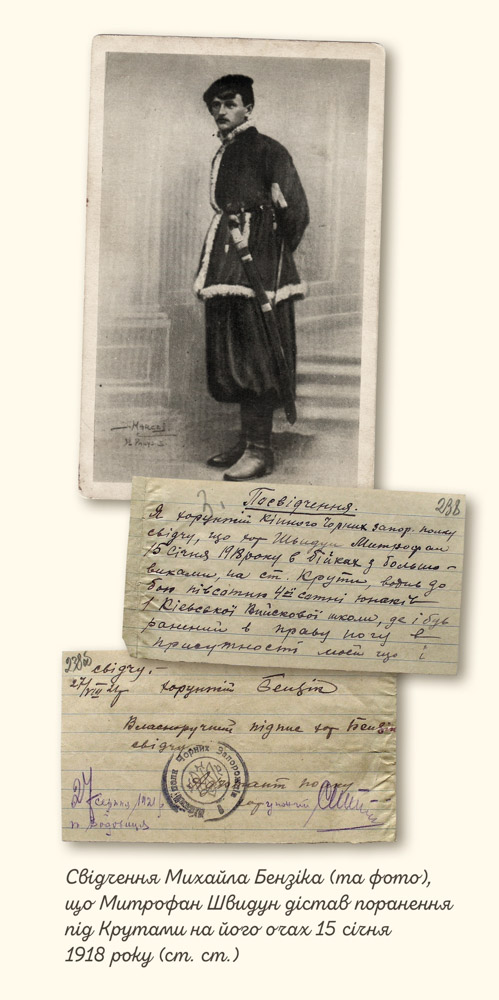 Посвідчення.
238
Я хорунжий Кінного Чорних запор. полку
свідчу, що хор Швидун Митрофан
15 Січня 1918 року в бійках з больше-
виками, на ст. Крути, водив до
бою півсотню 4ої сотні юнаків
1 Київської Військової школи, де і був
ранений в праву ногу в
присутності моєй що і
свідчу.-
хорунжий Бензік
Власноручний підпис хор Бензік
свідчу
полку
хорунжий
27 серпня 1921 р
Свідчення Михайла Бензіка (та фото),
що Митрофан Швидун дістав поранення
під Крутами на його очах 15 січня
1918 року (ст. ст.)